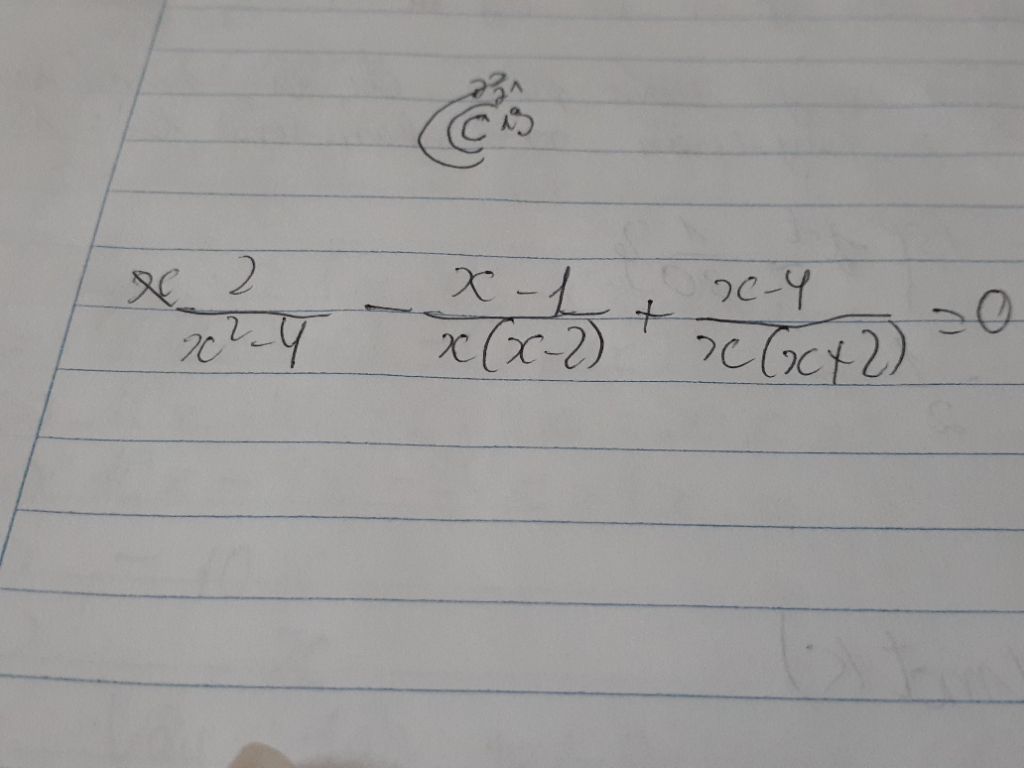 \frac{2}{x^2-4} - \frac{x-1}{x(x-2)} + \frac{x-4}{x(x+2)} = 0